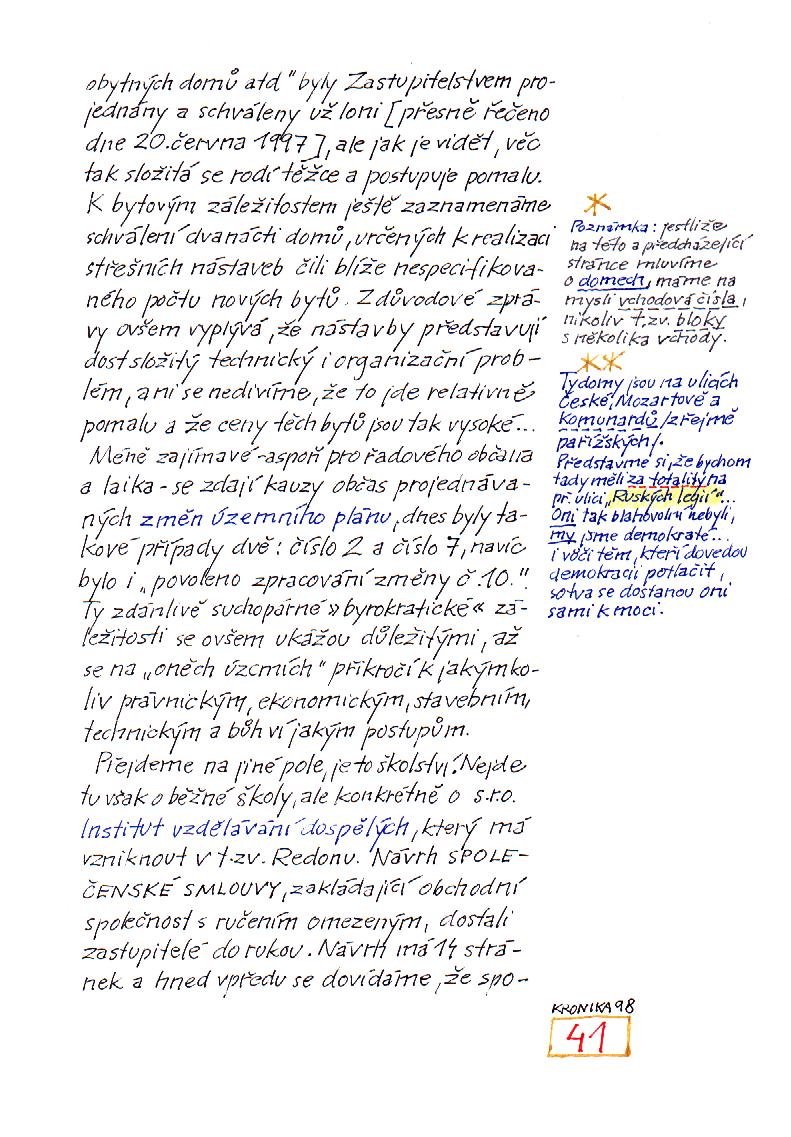 obytných domů atd" byly Zastupitelstvem pro-
jednány a schváleny už loni [přesně řečeno
dne 20.června 1997], ale jak je vidět, věc
tak složitá se rodí těžce a postupuje pomalu.
K bytovým záležitostem ještě zaznamenáme
schválení dvanácti domů, určených k realizaci
střešních nástaveb čili blíže nespecifikova-
ného počtu nových bytů. Z důvodové zprá-
vy ovšem vyplývá, že nástavby představují
dost složitý technický i organizační prob-
lém, a ni se nedivíme, že to jde relativně
pomalu a že ceny těch bytů jsou tak vysoké...
Méně zajímavé -aspoň pro řadového občana
a laika - se zdají kauzy občas projednáva-
ných změn územního plánu, dnes byly ta-
kové případy dvě: číslo 2 a číslo 7, navíc
bylo i „povoleno zpracování změny č.10."
Ty zdánlivě suchopárné »byrokratické« zá-
ležitosti se ovšem ukážou důležitými, až
se na „oněch územích" přikročí k jakýmko-
liv právnickým, ekonomickým, stavebním,
technickým a bůh ví jakým postupům.
Přejdeme na jiné pole, je to školství. Nejde
tu však o běžné školy, ale konkrétně o s.r.o.
Institut vzdělávání dospělých, který má
vzniknout v t.zv. Redonu. Návrh SPOLE-
ČENSKÉ SMLOUVY, zakládající obchodní
společnost s ručením omezeným, dostali
zastupitelé do rukou. Návrh má 14 strá-
nek a hned vpředu se dovídáme, že spo-
*
Poznámka: jestliže
na této a předcházející
stránce mluvíme
o domech, máme na
mysli vchodová čísla,
nikoliv t.zv. bloky
s několika vchody.
**
Ty domy jsou na ulicích
České, Mozartově a
Komunardů /zřejmě
pařížských/.
Představme si, že bychom
tady měli za totality na
př. ulici „Ruských legií"...
Oni tak blahovolní nebyli,
my jsme demokraté...
i vůči těm, kteří dovedou
demokracii potlačit,
sotva se dostanou oni
sami k moci.
KRONIKA 98
41